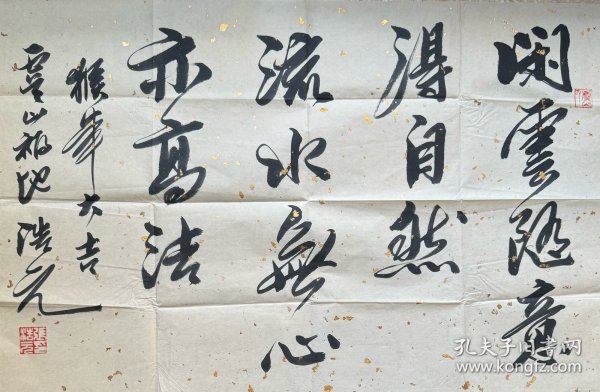 闲雲随意
得自然
流水無心
亦高洁
猴年大吉
虞山福地 浩元
孔夫子旧书网
www.kongfz.com